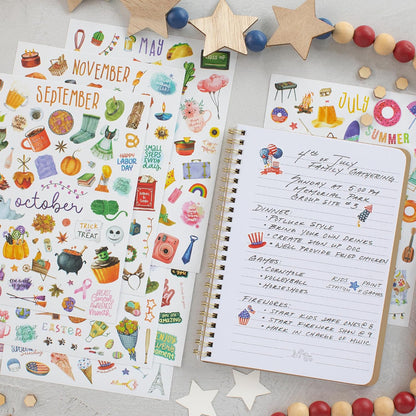 MAY
NOVEMBER
SEPTEMBER
HAPPY
LABOR
DAY
SMALL
STEPS
EVERY
DAY
october
TRICK
or
TREAT
EASTER
JULY
SUMMER
4th of July
Family Gathering
Sunday at 5:00 pm
Memorial Park
Group Site # 3
Dinner:
• Potluck Style
• Bring your own drinks
• Create sign up one
• Neil provide fried chicken
Games:
• Cornhole
• Volleyball
• Horseshoes
Kids
Paint
Games
Fireworks:
• Start kids ones @ 8
• Start firework show @ 9
• Mark in charge of music